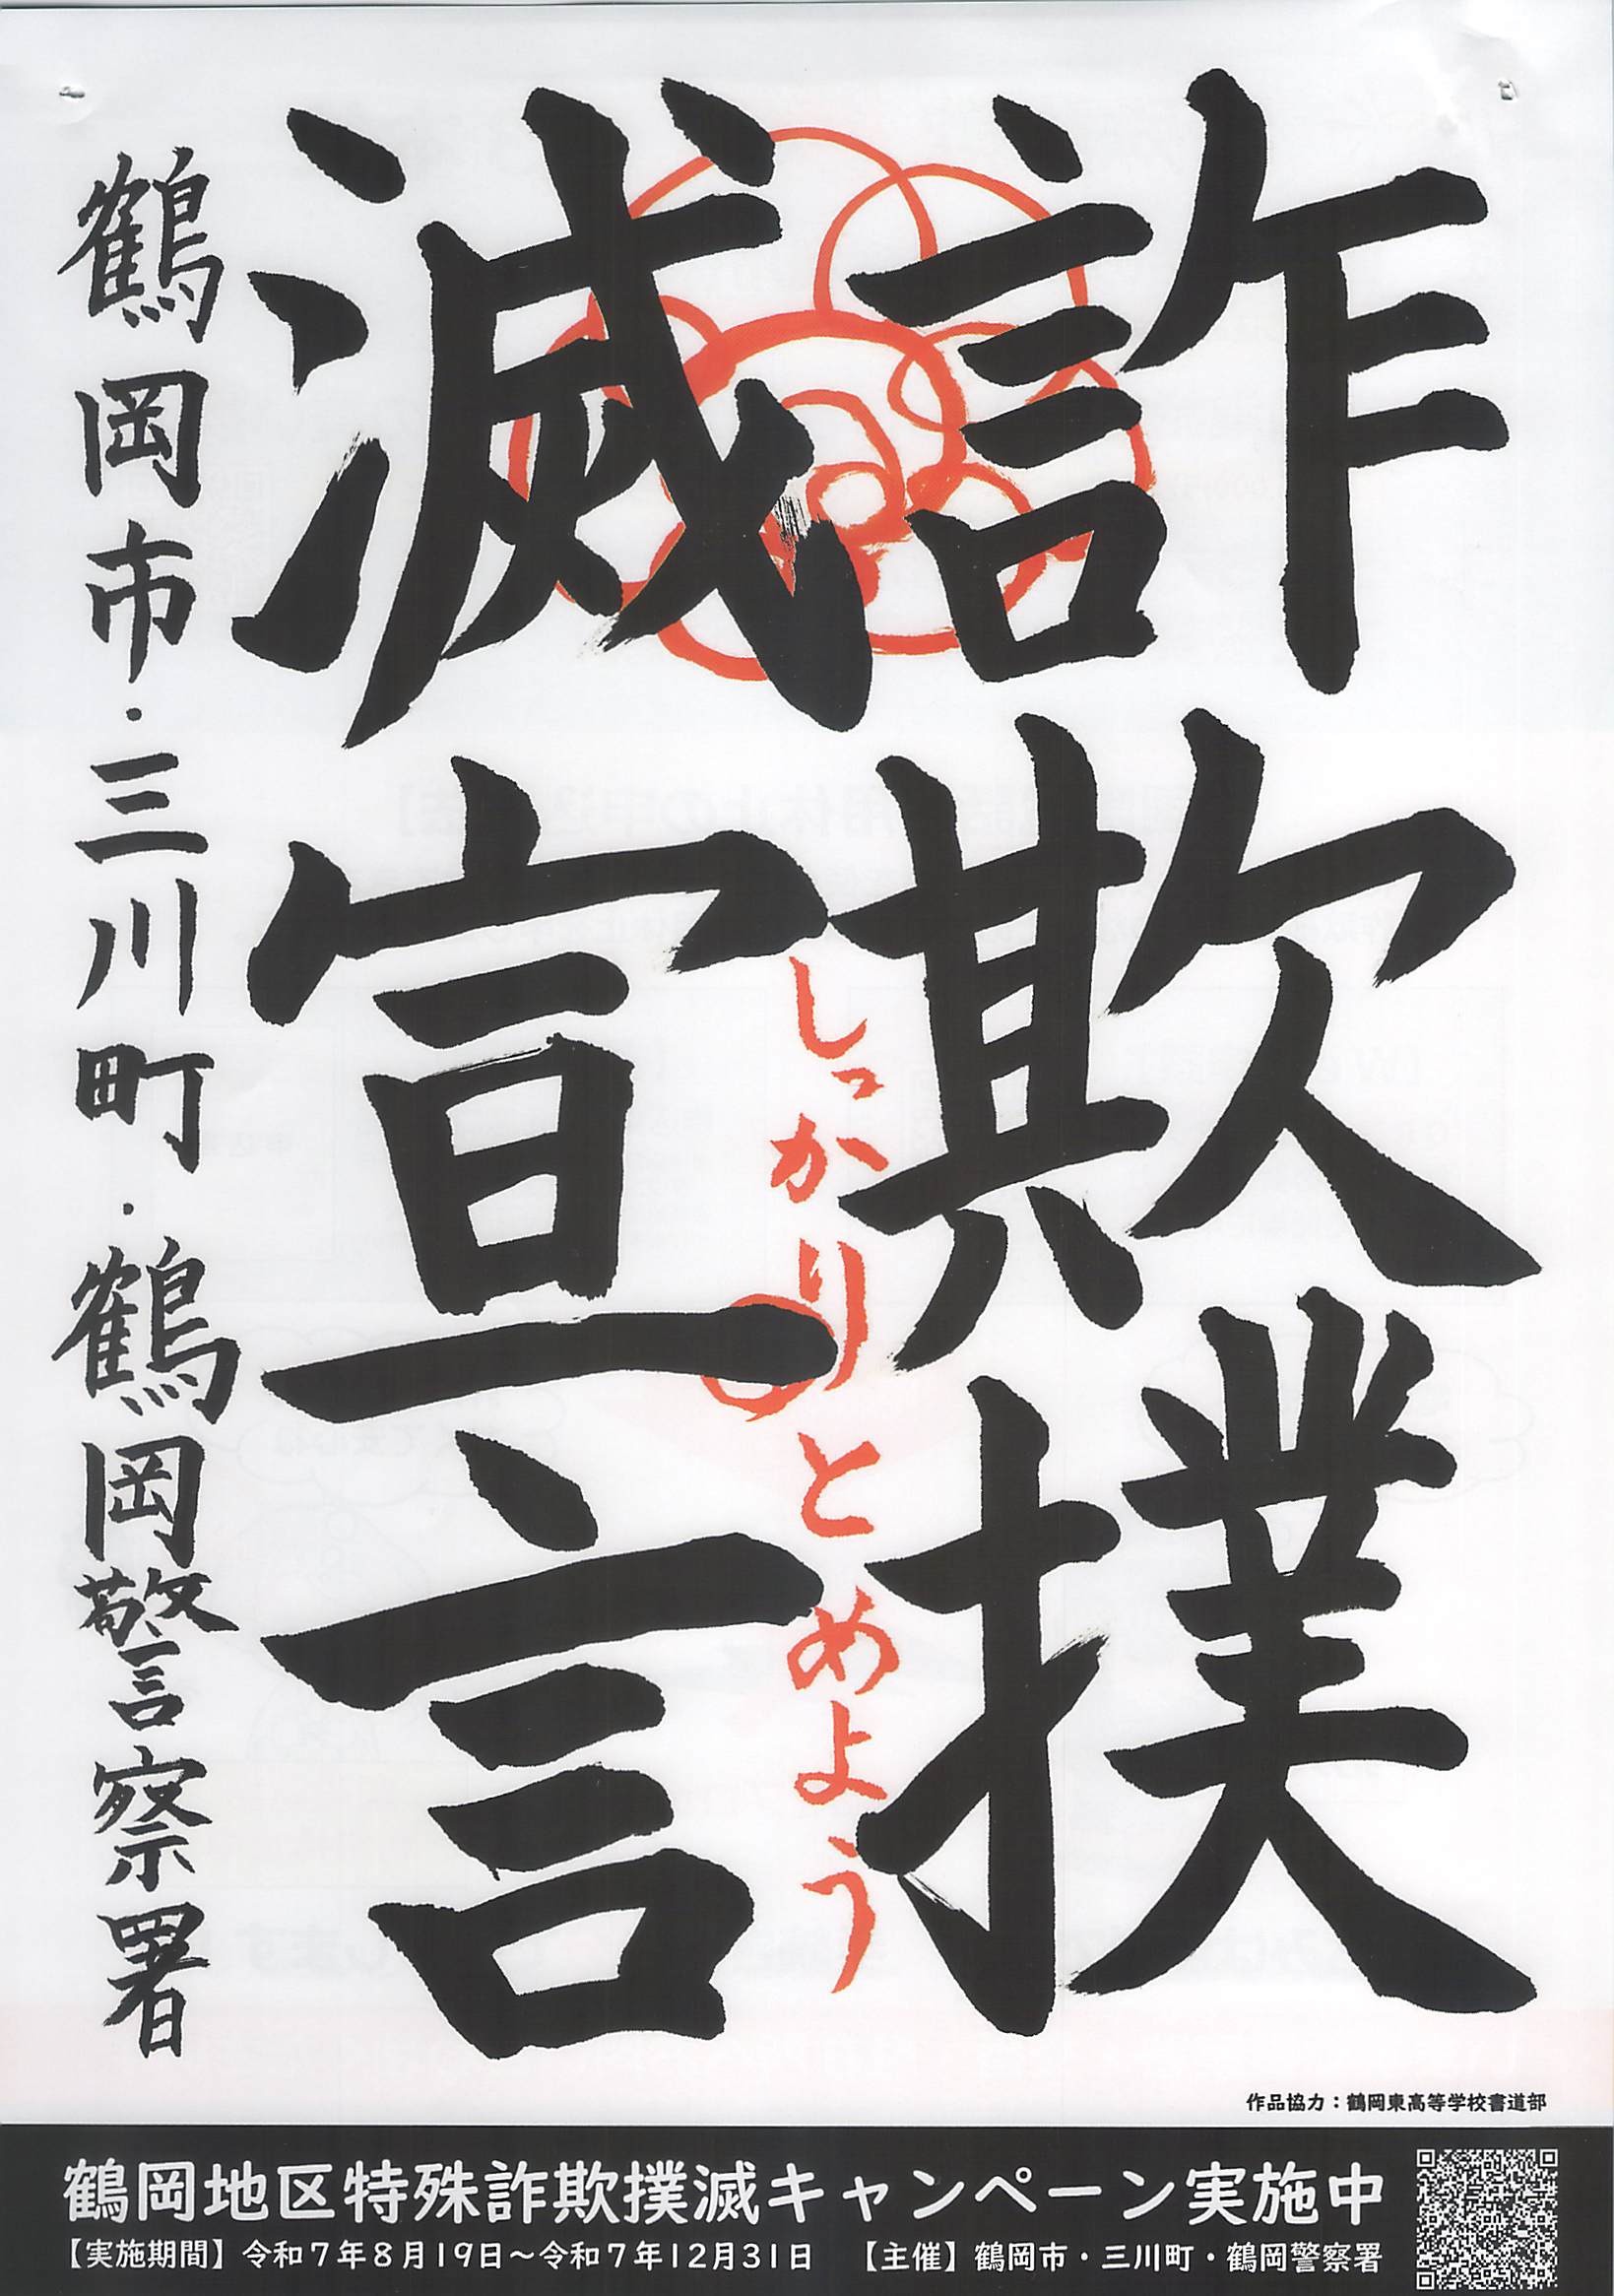 詐欺撲
滅宣言
しっかりとめよう
鶴岡市・三川町・鶴岡警察署
作品協力：鶴岡東高等学校書道部
鶴岡地区特殊詐欺撲滅キャンペーン実施中
【実施期間】令和7年8月19日～令和7年12月31日　【主催】鶴岡市・三川町・鶴岡警察署